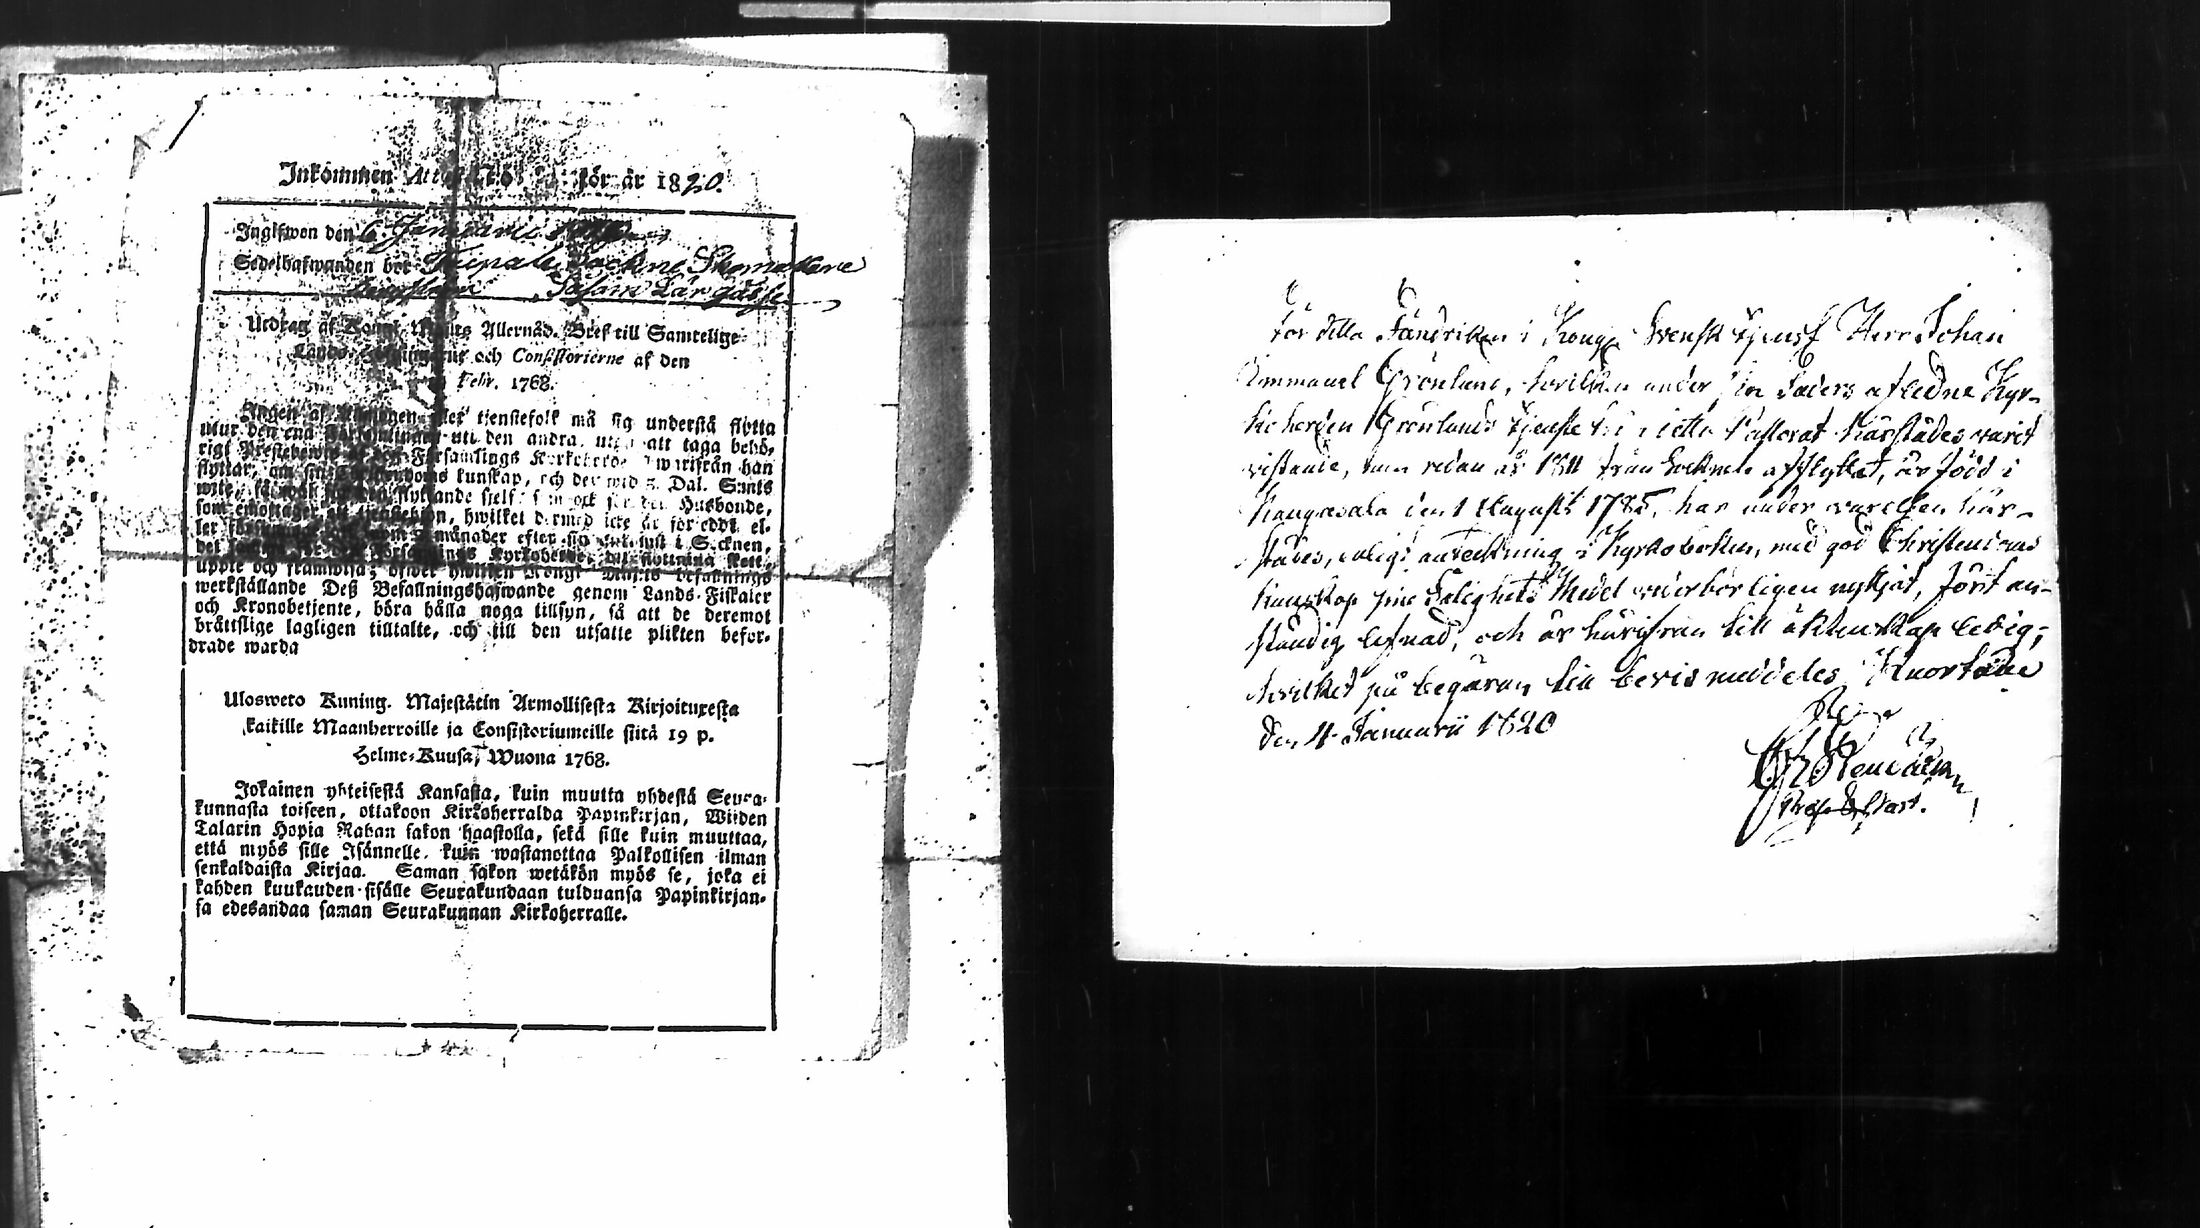 Inkommen för år 1820.
Ingifwen den 6 Januarii
Sedelhafwanden bor Sockne Skomakare
Utdrag af Kongl. Maj:ts Allernåd. Bref till Samtelige
Lands och Consistorierne af den
Febr. 1768.
Ingen af tienstefolk må sig understå flytta
utur den ena uti den andra, utan att taga behö-
rigt Prestebewis af den Församlings Kyrkoherde hwarifrån han
flyttar, om sin kunskap, och der wid 5. Dal. S:mts
wite, så wäl för den flyttande sielf, som ock för den Husbonde,
som emottager ett tienstehjon, hwilket dermed icke är försedt, el-
ler månader efter sin ankomst i Socknen,
det Församlings Kyrkoherde, dit flyttning skett,
uppte och framwisa; öfwer hwilken Kongl Maj:ts Befallnings
werkställande Deß Befallningshafwande genom Lands-Fiskaler
och Kronobetjente, böra hålla noga tillsyn, så att de deremot
bråttslige lagligen tilltalte, och till den utsatte plikten befor-
drade warda
Ulosweto Kuning. Majestätin Armollisesta Kirjoituxesta
kaikille Maanherroille ja Consistoriumeille siitä 19 p.
Helme-Kuusa, Wuona 1768.
Jokainen yhteisestä Kansasta, kuin muutta yhdestä Seura-
kunnasta toiseen, ottakoon Kirkoherralda Papinkirjan, Wiiden
Talarin Hopia Rahan sakon haastolla, sekä sille kuin muuttaa,
että myös sille Isännelle, kuin wastanottaa Palkollisen ilman
senkaldaista Kirjaa. Saman sakon wetäkön myös se, joka ei
kahden kuukauden sisälle Seurakundaan tulduansa Papinkirjan-
sa edesandaa saman Seurakunnan Kirkoherralle.
För detta Fändriken i Kongl. Svensk tjenst Herr Johan
Emmanuel Grönlund, hvilken under sin Faders afledne Kyr-
koherden Grönlunds tjenste tid i detta Pastorat härstädes varit
vistande, men redan år 1811 från Socknen afflyttat, är född i
Kangasala den 1 Augusti 1785, har under varelsen här-
städes, enligt anteckning i Kyrkoboken, med god Christendoms
kunskap sine Salighets Medel vederbörligen nyttjat, fört an-
ständig lefnad, och är härifrån till äktenskap ledig;
hvilket på begäran till bevis meddeles. Kuortane
den 4 Januarii 1820